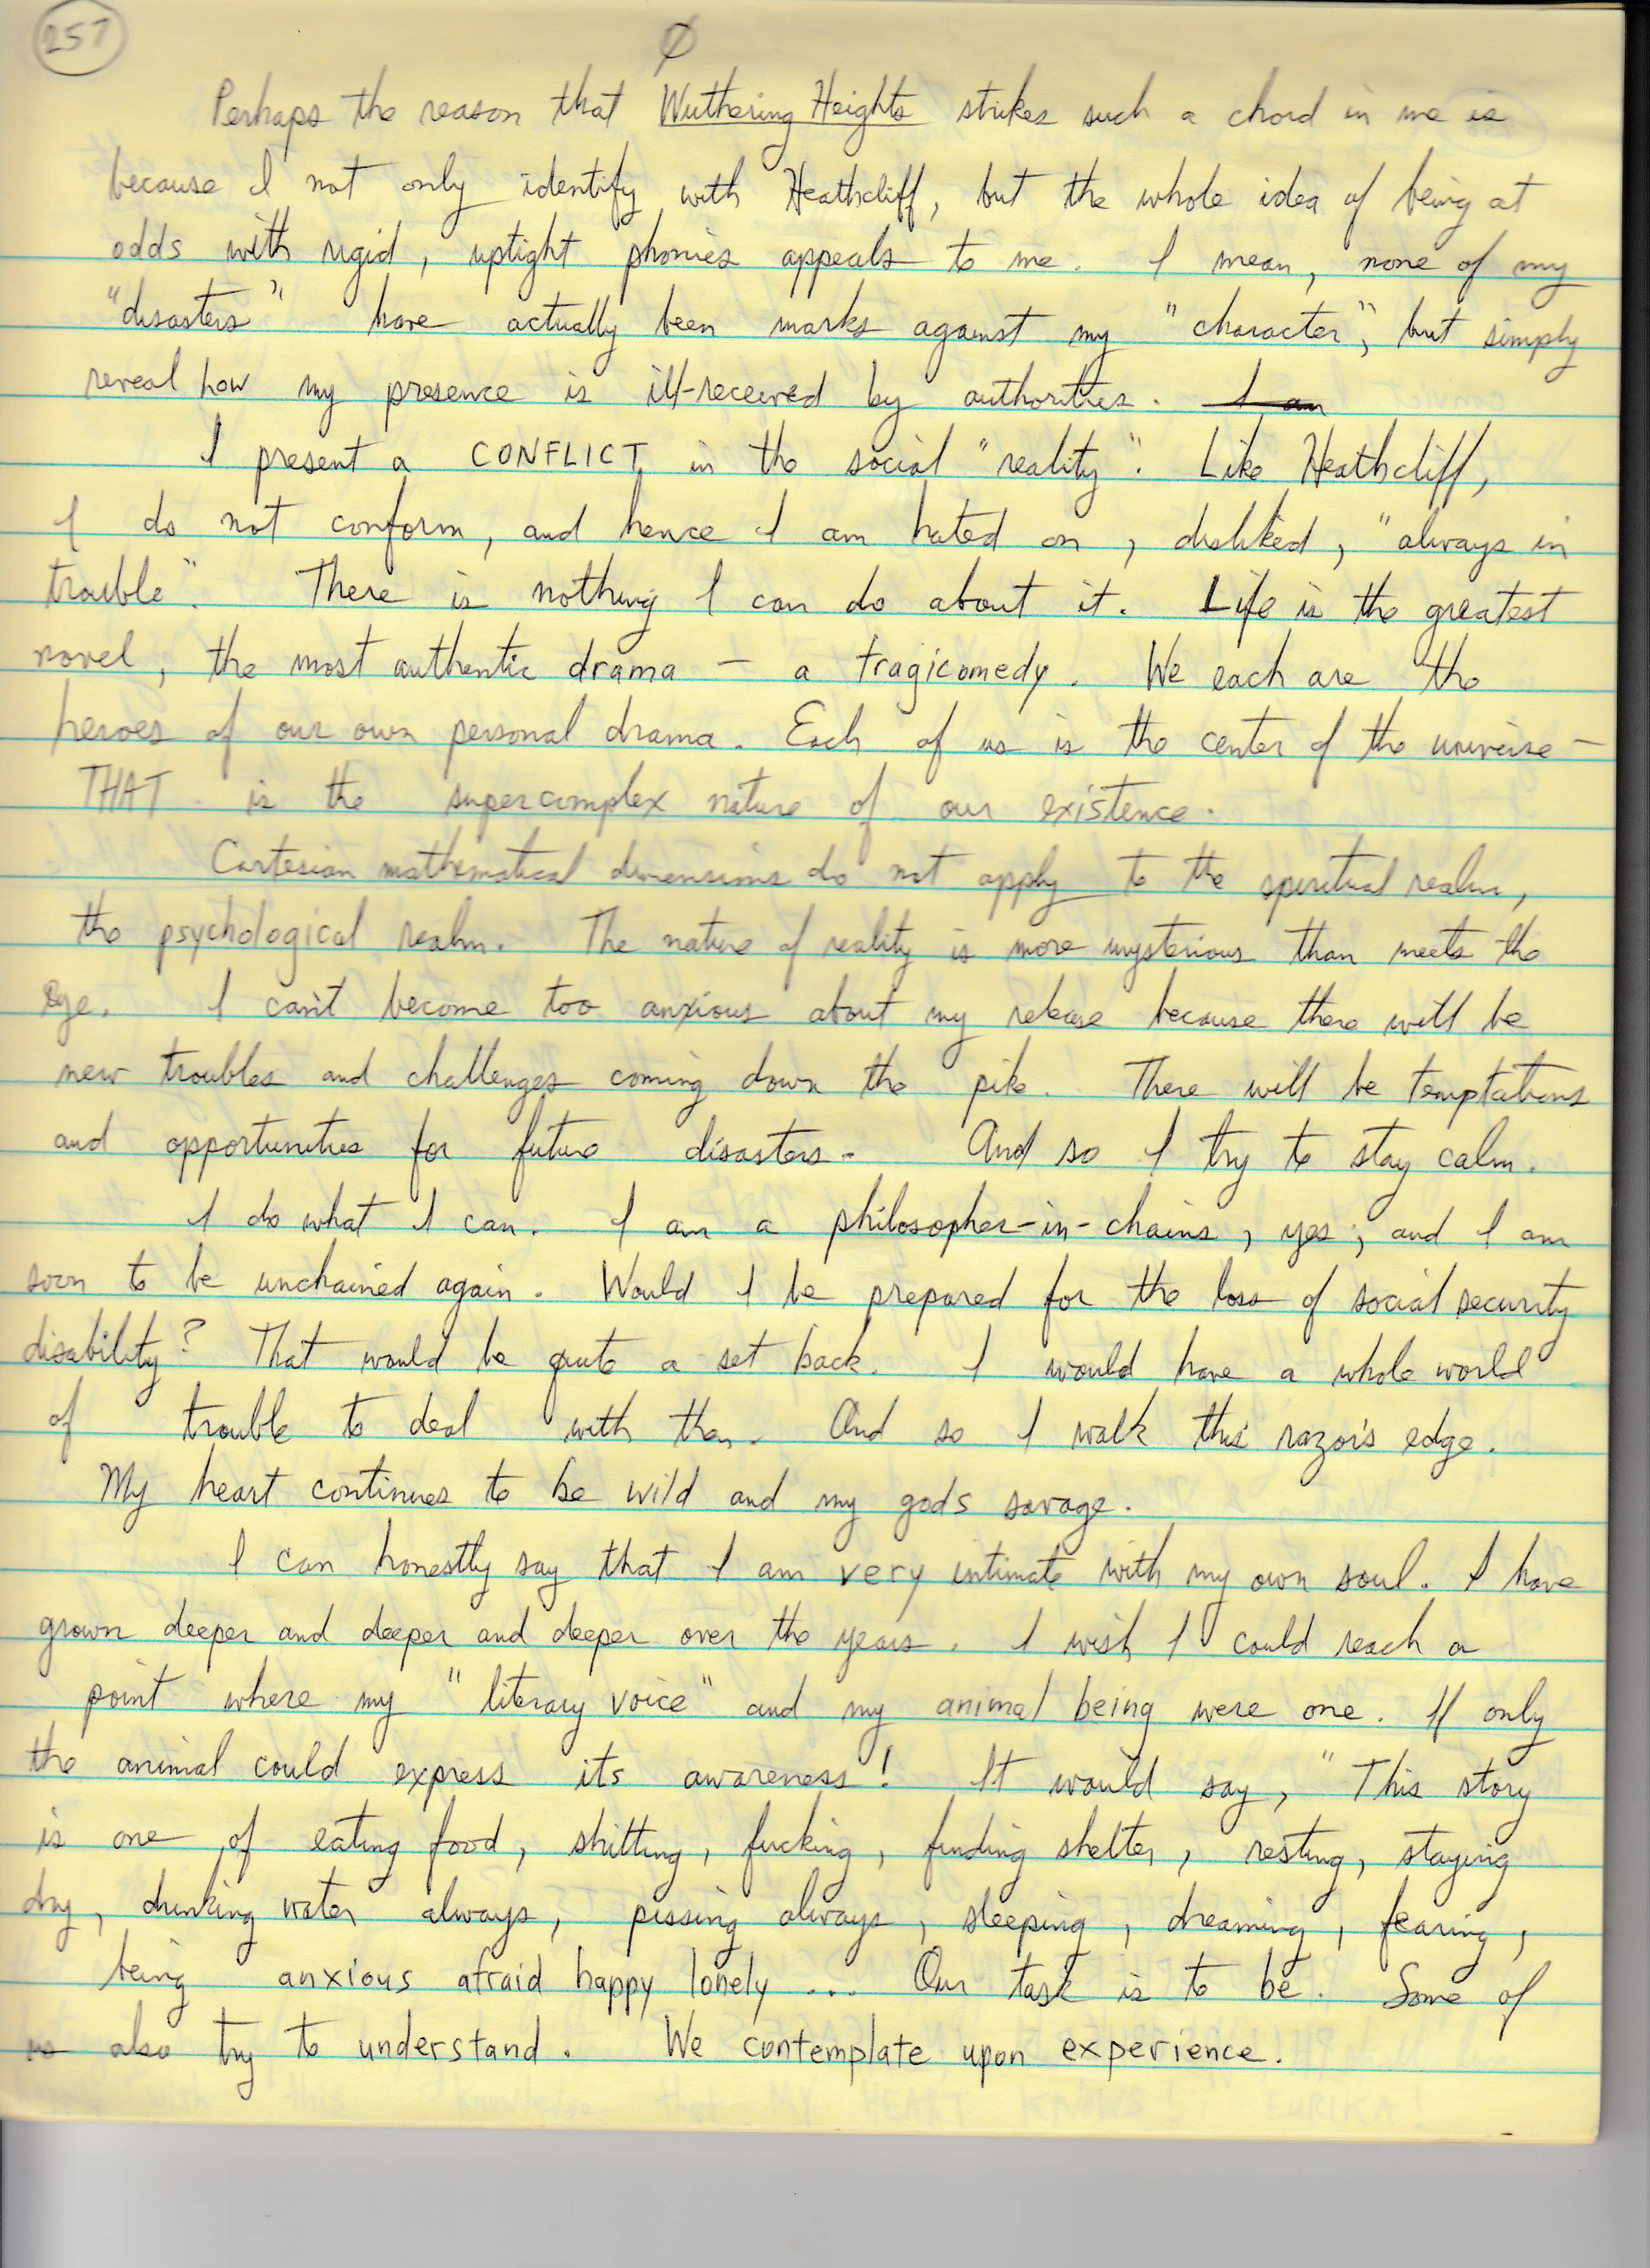 257
Ø
Perhaps the reason that Wuthering Heights strikes such a chord in me is
because I not only identify with Heathcliff, but the whole idea of being at
odds with rigid, uptight phonies appeals to me. I mean, none of my
"disasters" have actually been marks against my "character", but simply
reveal how my presence is ill-received by authorities. I am
I present a CONFLICT in the social "reality". Like Heathcliff,
I do not conform, and hence I am hated on, disliked, "always in
trouble". There is nothing I can do about it. Life is the greatest
novel, the most authentic drama — a tragicomedy. We each are the
heroes of our own personal drama. Each of us is the center of the universe —
THAT is the supercomplex nature of our existence.
Cartesian mathematical dimensions do not apply to the spiritual realm,
the psychological realm. The nature of reality is more mysterious than meets the
eye. I can't become too anxious about my release because there will be
new troubles and challenges coming down the pike. There will be temptations
and opportunities for future disasters. And so I try to stay calm.
I do what I can. I am a philosopher-in-chains, yes, and I am
soon to be unchained again. Would I be prepared for the loss of social security
disability? That would be quite a set back. I would have a whole world
of trouble to deal with then. And so I walk this razor's edge.
My heart continues to be wild and my gods savage.
I can honestly say that I am very intimate with my own soul. I have
grown deeper and deeper and deeper over the years. I wish I could reach a
point where my "literary voice" and my animal being were one. If only
the animal could express its awareness! It would say, "This story
is one of eating food, shitting, fucking, finding shelter, resting, staying
dry, drinking water always, pissing always, sleeping, dreaming, fearing,
being anxious afraid happy lonely ... Our task is to be. Some of
us also try to understand. We contemplate upon experience.